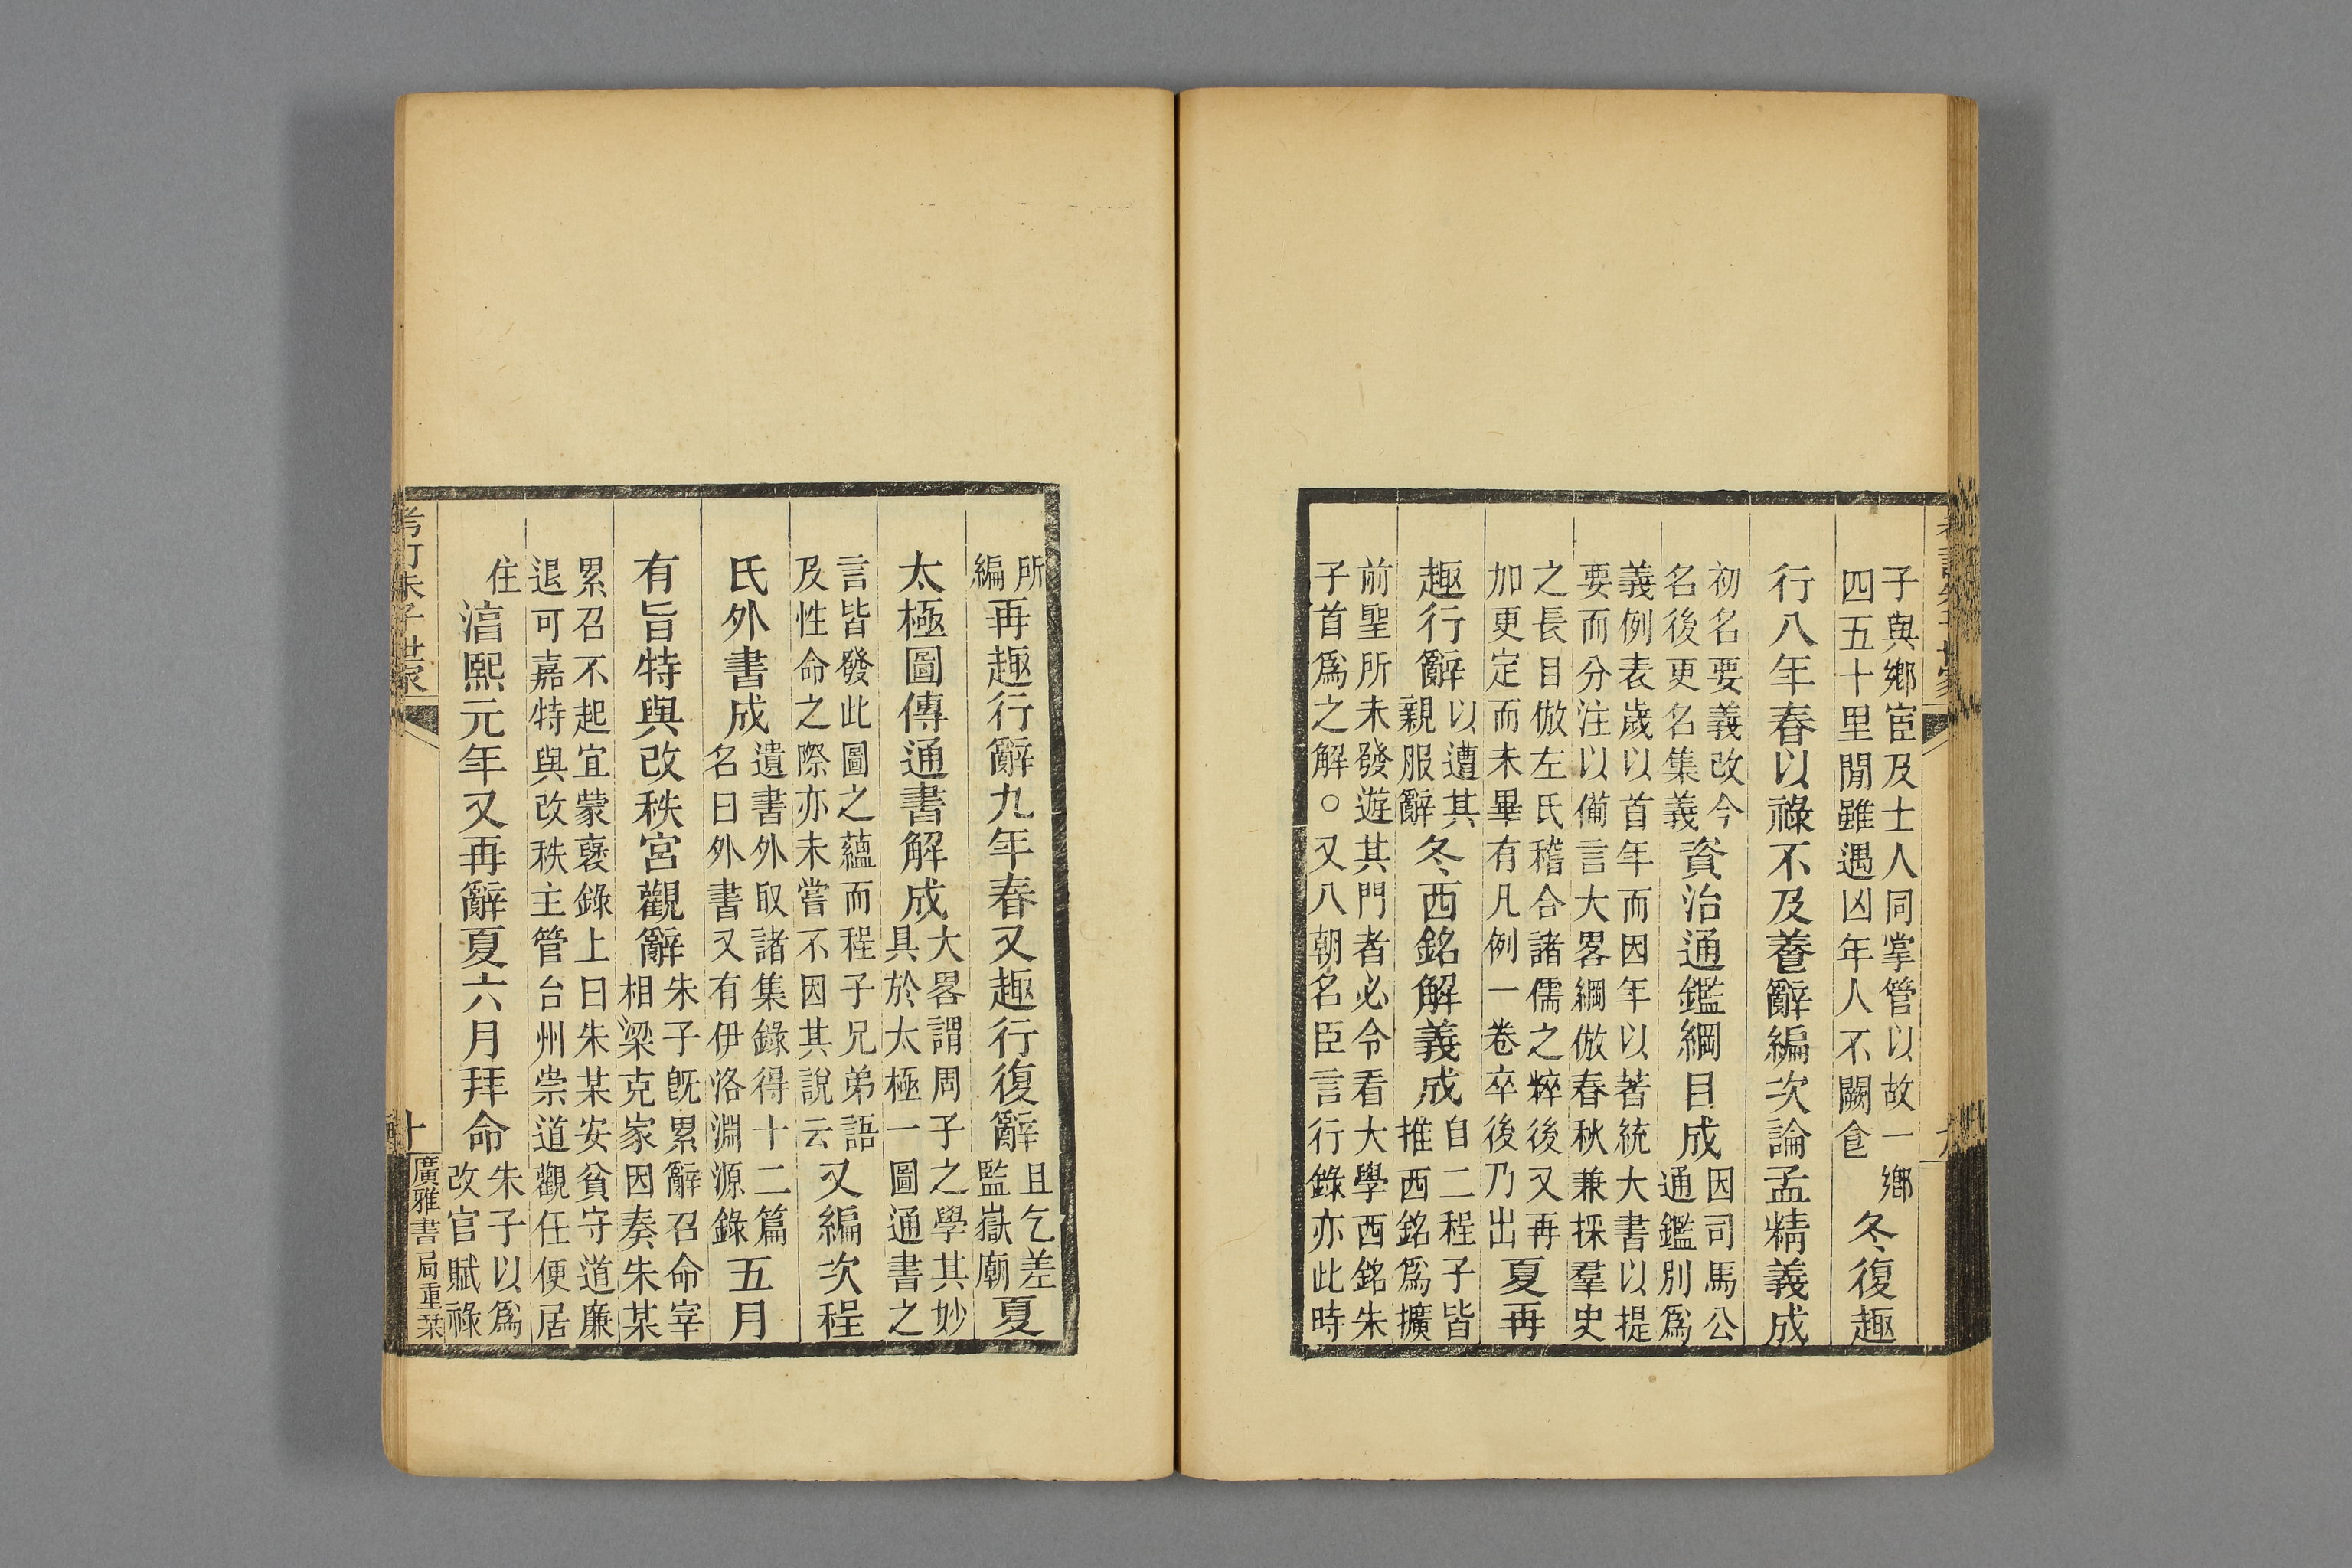 子與鄉宦及士人同掌管以故一鄉四五十里閒雖遇凶年人不闕食冬復趣
行八年春以祿不及養辭編次論孟精義成
初名要義改今名後更名集義資治通鑑綱目成因司馬公通鑑別爲
義例表歲以首年而因年以著統大書以提要而分注以備言大畧綱倣春秋兼採羣史
之長目倣左氏稽合諸儒之粹後又再加更定而未畢有凡例一卷卒後乃出夏再
趣行辭以遭其親服辭冬西銘解義成自二程子皆推西銘爲擴
前聖所未發遊其門者必令看大學西銘朱子首爲之解○又八朝名臣言行錄亦此時
所編再趣行辭九年春又趣行復辭且乞差監嶽廟夏
太極圖傳通書解成大畧謂周子之學其妙具於太極一圖通書之
言皆發此圖之蘊而程子兄弟語及性命之際亦未嘗不因其說云又編次程
氏外書成遺書外取諸集錄得十二篇名曰外書又有伊洛淵源錄五月
有旨特與改秩宮觀辭朱子旣累辭召命宰相梁克家因奏朱某
累召不起宜蒙襃錄上曰朱某安貧守道廉退可嘉特與改秩主管台州崇道觀任便居
住湻熙元年又再辭夏六月拜命朱子以爲改官賦祿
考訂朱子世家
十
廣雅書局重栞